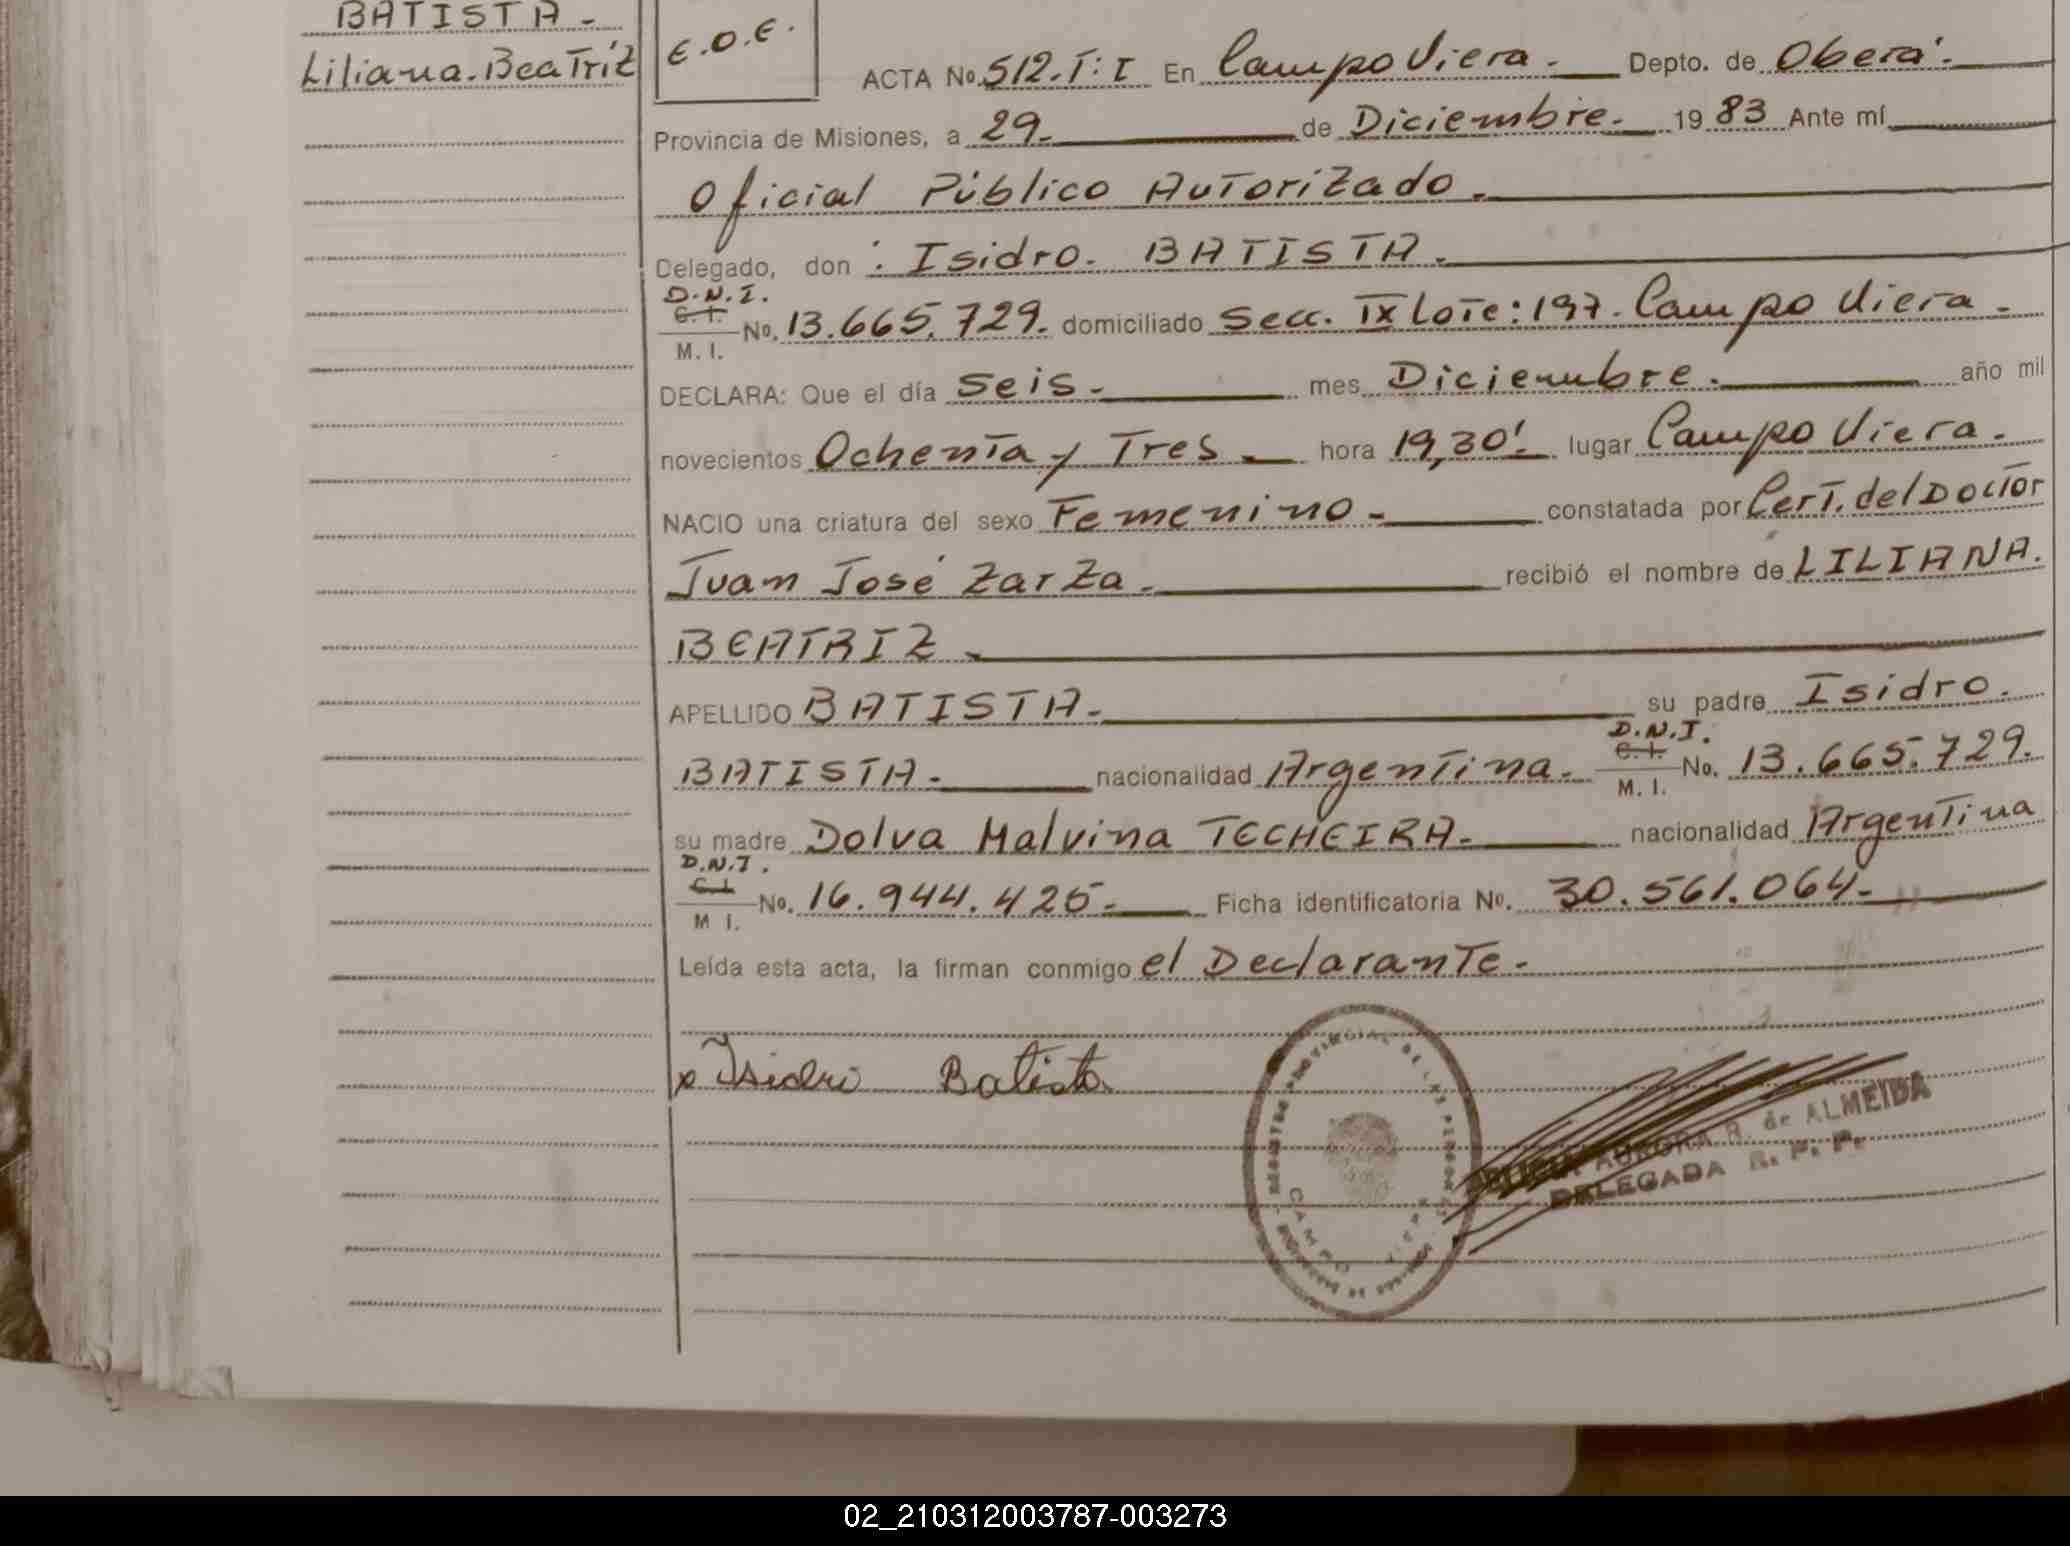 BATISTA -
Liliana. Beatriz
E.O.E.
ACTA No. 512. T: I En Campo Viera. Depto. de Oberá.
Provincia de Misiones, a 29. de Diciembre. 19 83 Ante mí
Oficial Público Autorizado.
Delegado, don : Isidro. BATISTA.
D.N.I.
C. I.
M. I.
No. 13.665.729. domiciliado Secc. IX Lote: 197. Campo Viera.
DECLARA: Que el día Seis. mes Diciembre. año mil
novecientos Ochenta y Tres hora 19,30'. lugar Campo Viera.
NACIO una criatura del sexo Femenino. constatada por Cert. del Doctor
Juan José Zarza. recibió el nombre de LILIANA.
BEATRIZ.
APELLIDO BATISTA. su padre Isidro.
D.N.I.
C. I.
M. I.
BATISTA. nacionalidad Argentina. No. 13.665.729.
su madre Dolva Malvina TECHEIRA. nacionalidad Argentina
D.N.I.
C. I.
M I.
No. 16.944.425. Ficha identificatoria No. 30.561.064.
Leída esta acta, la firman conmigo el Declarante.
x Isidri Batista
PROVINCIAL DE LAS PERSONAS
CAMPO
AURORA R. de ALMEIDA
DELEGADA R. P. P.
02_210312003787-003273